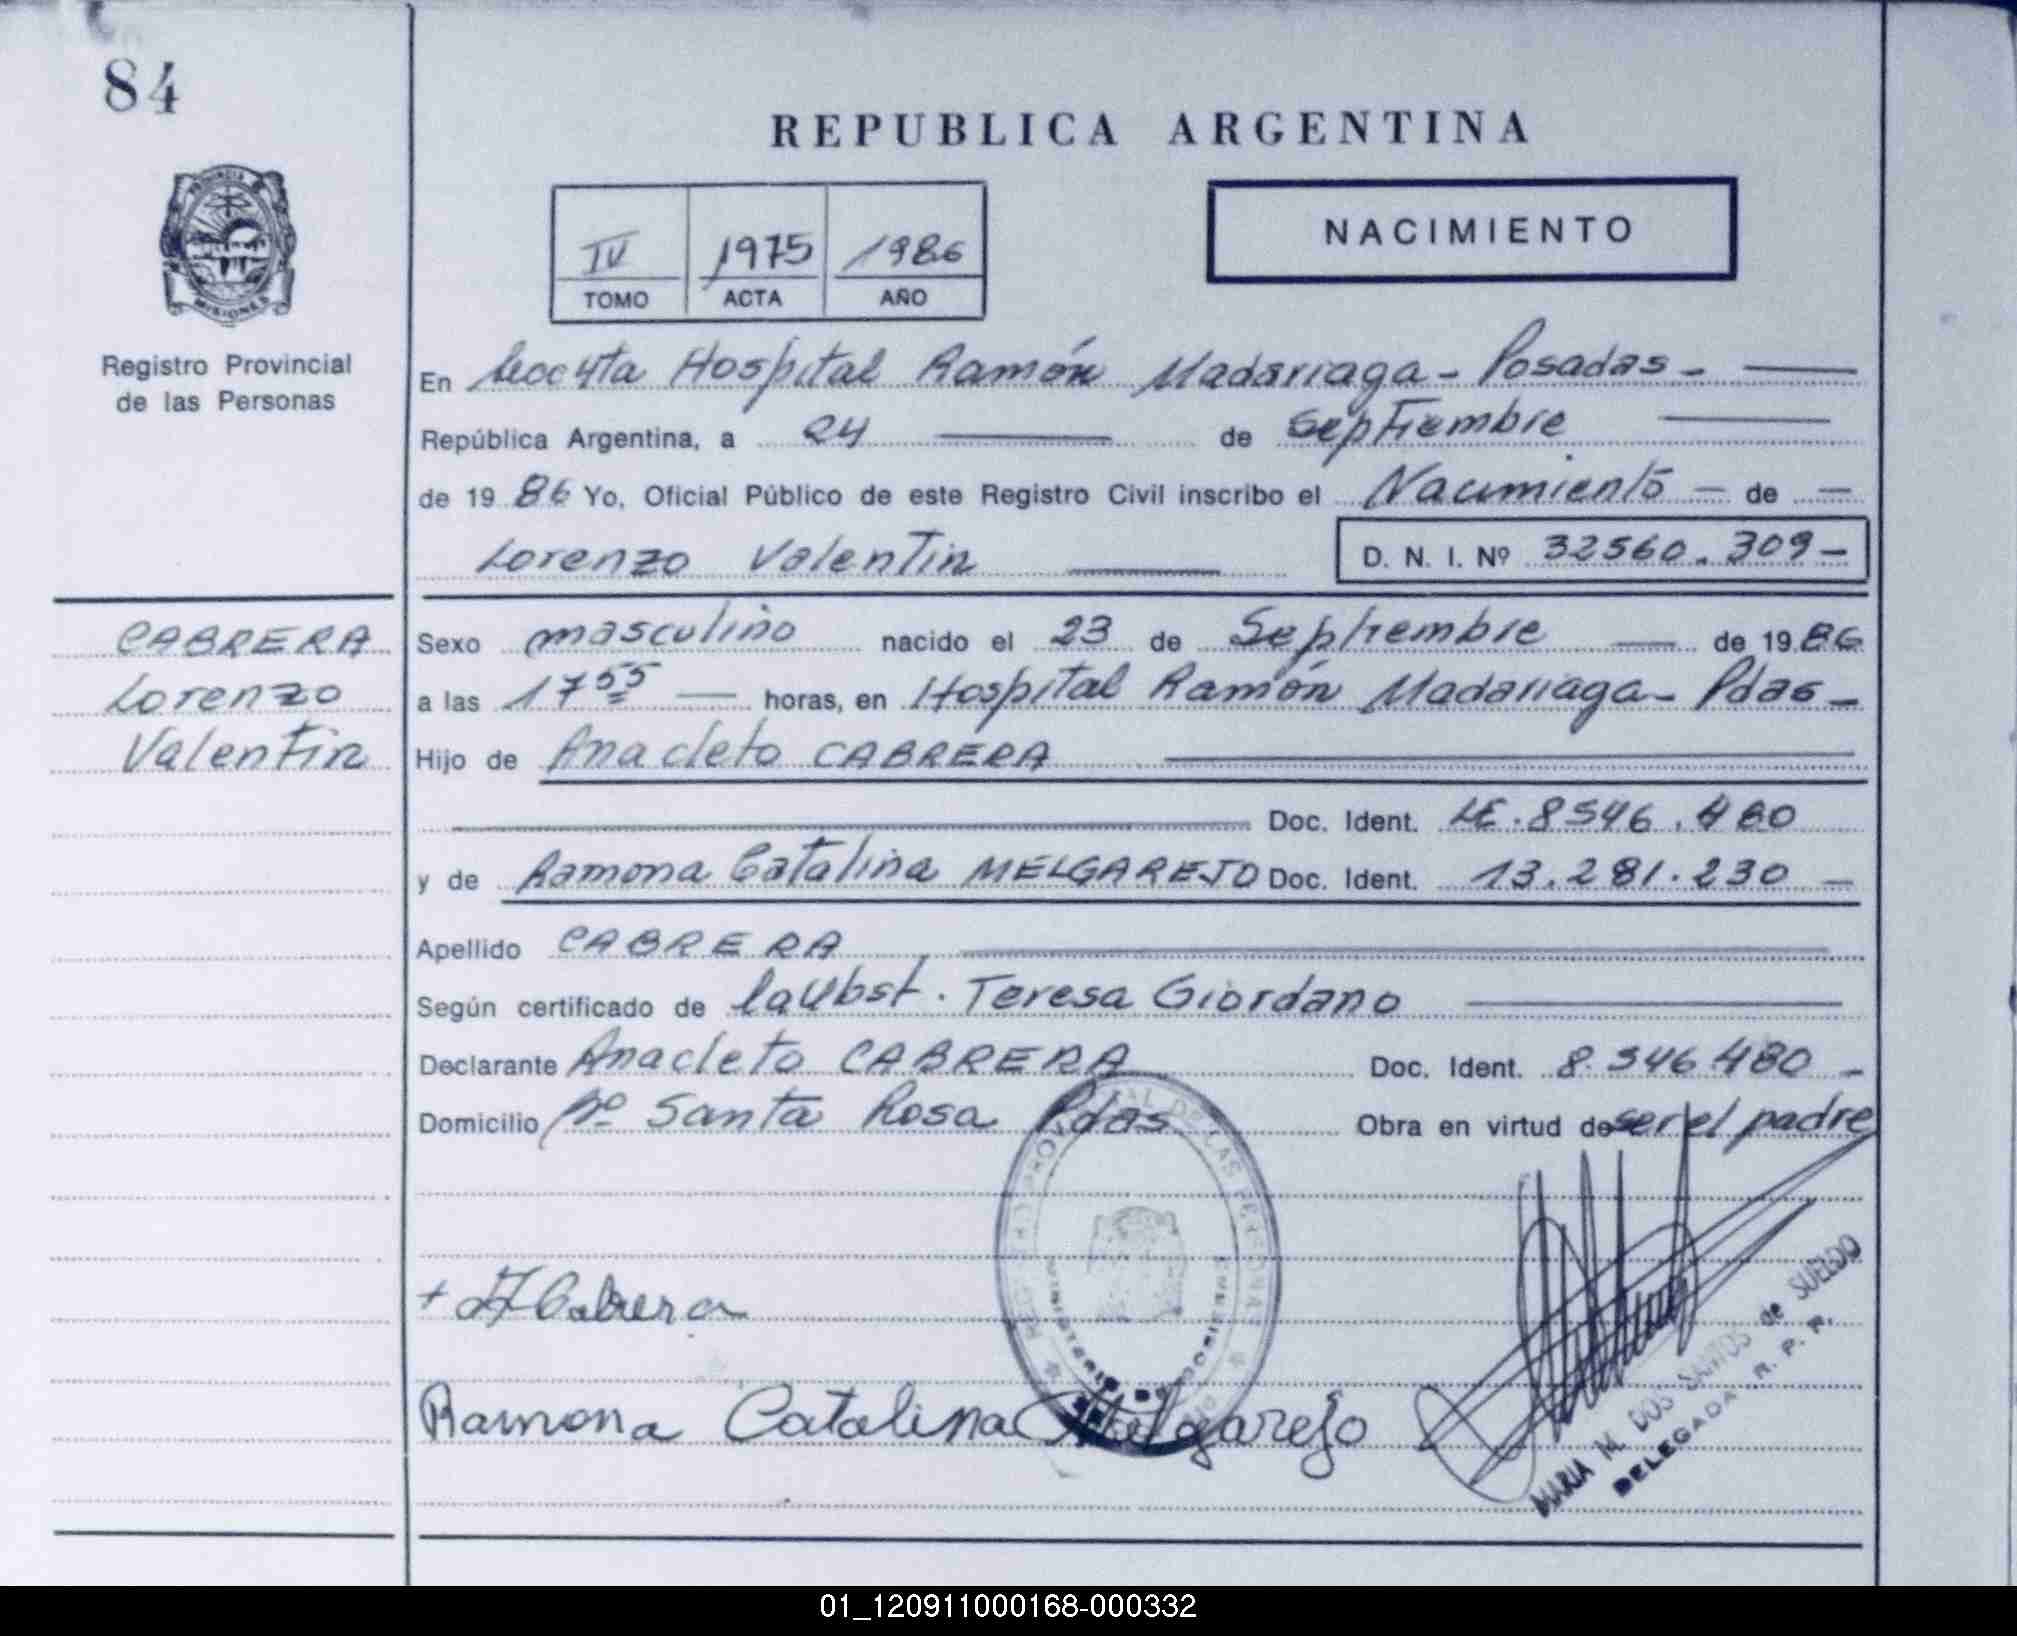 84
REPUBLICA ARGENTINA
PROVINCIA DE
MISIONES
Registro Provincial
de las Personas
IV 1975 1986
TOMO ACTA AÑO
NACIMIENTO
En Secc 4ta Hospital Ramón Madariaga - Posadas -
República Argentina, a 24 de Septiembre
de 19 86 Yo, Oficial Público de este Registro Civil inscribo el Nacimiento - de -
Lorenzo Valentin D. N. I. Nº 32560.309-
CABRERA
Lorenzo
Valentin
Sexo masculino nacido el 23 de Septiembre de 19 86
a las 17 55 horas, en Hospital Ramón Madariaga - Pdas -
Hijo de Anacleto CABRERA
Doc. Ident. LE. 8546.480
y de Ramona Catalina MELGAREJO Doc. Ident. 13.281.230 -
Apellido CABRERA
Según certificado de la Obst. Teresa Giordano
Declarante Anacleto CABRERA Doc. Ident. 8.546.480 -
Domicilio Bº Santa Rosa Pdas Obra en virtud de ser el padre
REGISTRO PROVINCIAL DE LAS PERSONAS
MINISTERIO DE GOBIERNO
Cabrera
Ramona Catalina Melgarejo
MARIA M. DOS SANTOS de SUELDO
DELEGADA R. P. P.
01_120911000168-000332